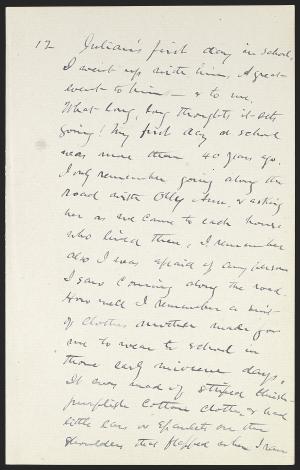 12 Julian's first day in school,
I went up with him. A great
event to him — & to me.
What long, long thoughts it sets
going! My first day at school
was more than 40 years ago.
I only remember going along the
road with Olly Ann, & asking
her as we came to each house
who lived there, I remember
also I was afraid of any person
I saw coming along the road.
How well I remember a suit
of clothes mother made for
me to wear to school in
those early summer days,
It was made of striped thick
purplish cotton cloth, & had
little ears or epaulets on the
shoulders that flopped when I ran